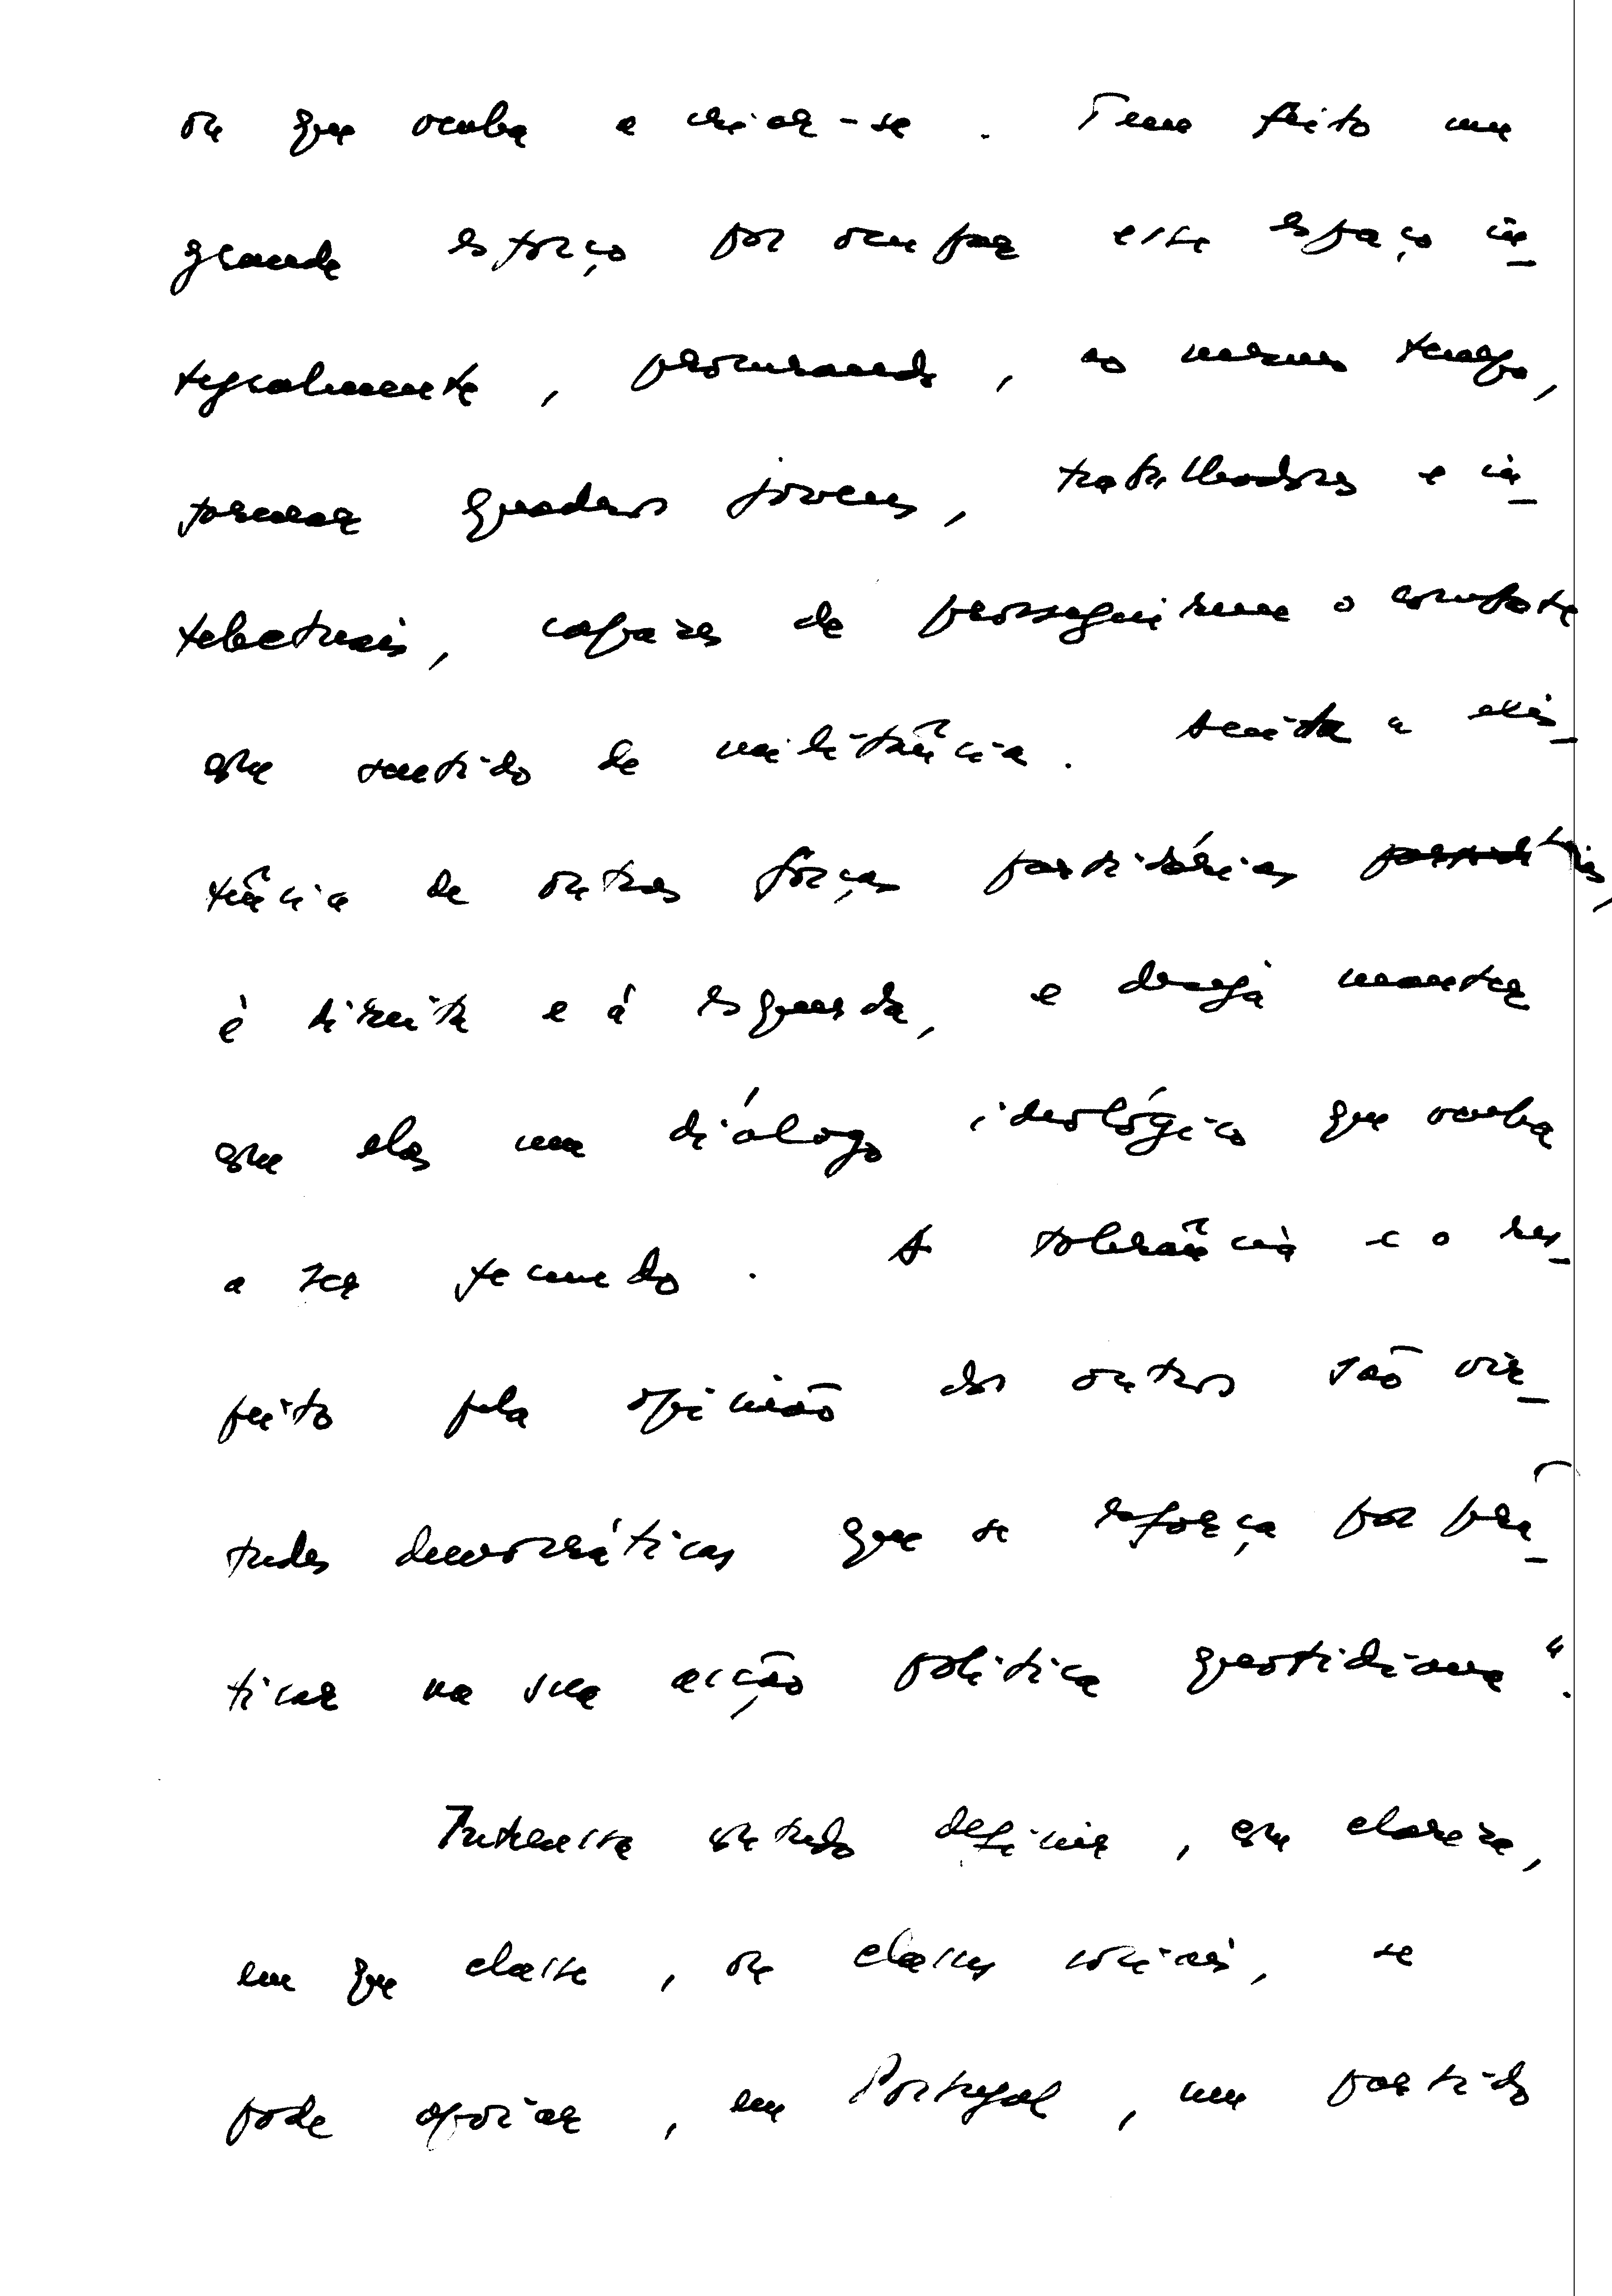 ou que acaba a criar-se. Tem feito um
grande esforço por ocupar esse espaço in-
tegralmente, procurando, ao mesmo tempo,
formar quadros jovens, trabalhadores e in-
telectuais, capazes de prosseguirem o combate
com sentido de militância. Aceita a exis-
tência de outras forças partidárias
à direita e à esquerda, e deseja manter
com elas um diálogo ideológico que acaba
a ser fecundo. A tolerância e o res-
peito pela opinião dos outros são vir-
tudes democráticas que se esforça por prá-
ticar na sua acção política quotidiana".
Interessa contudo definir, com clareza,
em que classe, ou classes sociais, se
pode apoiar, em Portugal, um partido